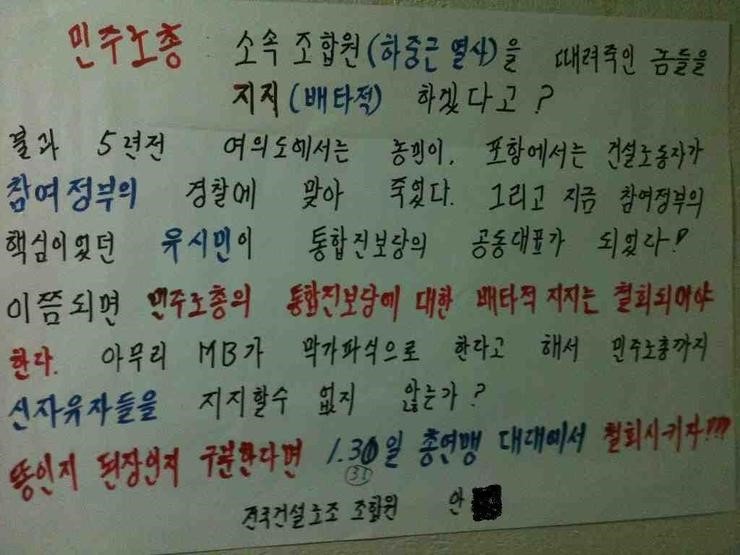 민주노총 소속 조합원(하중근 열사)을 때려죽인 놈들을
지지(배타적) 하겠다고?
결과 5년전 여의도에서는 농민이, 포항에서는 건설노동자가
참여정부의 경찰에 맞아 죽었다. 그리고 지금 참여정부의
핵심이었던 유시민이 통합진보당의 공동대표가 되었다!
이쯤되면 민주노총의 통합진보당에 대한 배타적 지지는 철회되어야
한다. 아무리 MB가 막가파식으로 한다고 해서 민주노총까지
신자유자들을 지지할수 없지 않는가?
똥인지 된장인지 구분한다면 1.30일 총연맹 대대에서 철회시키자!!!
(31)
전국건설노조 조합원 안